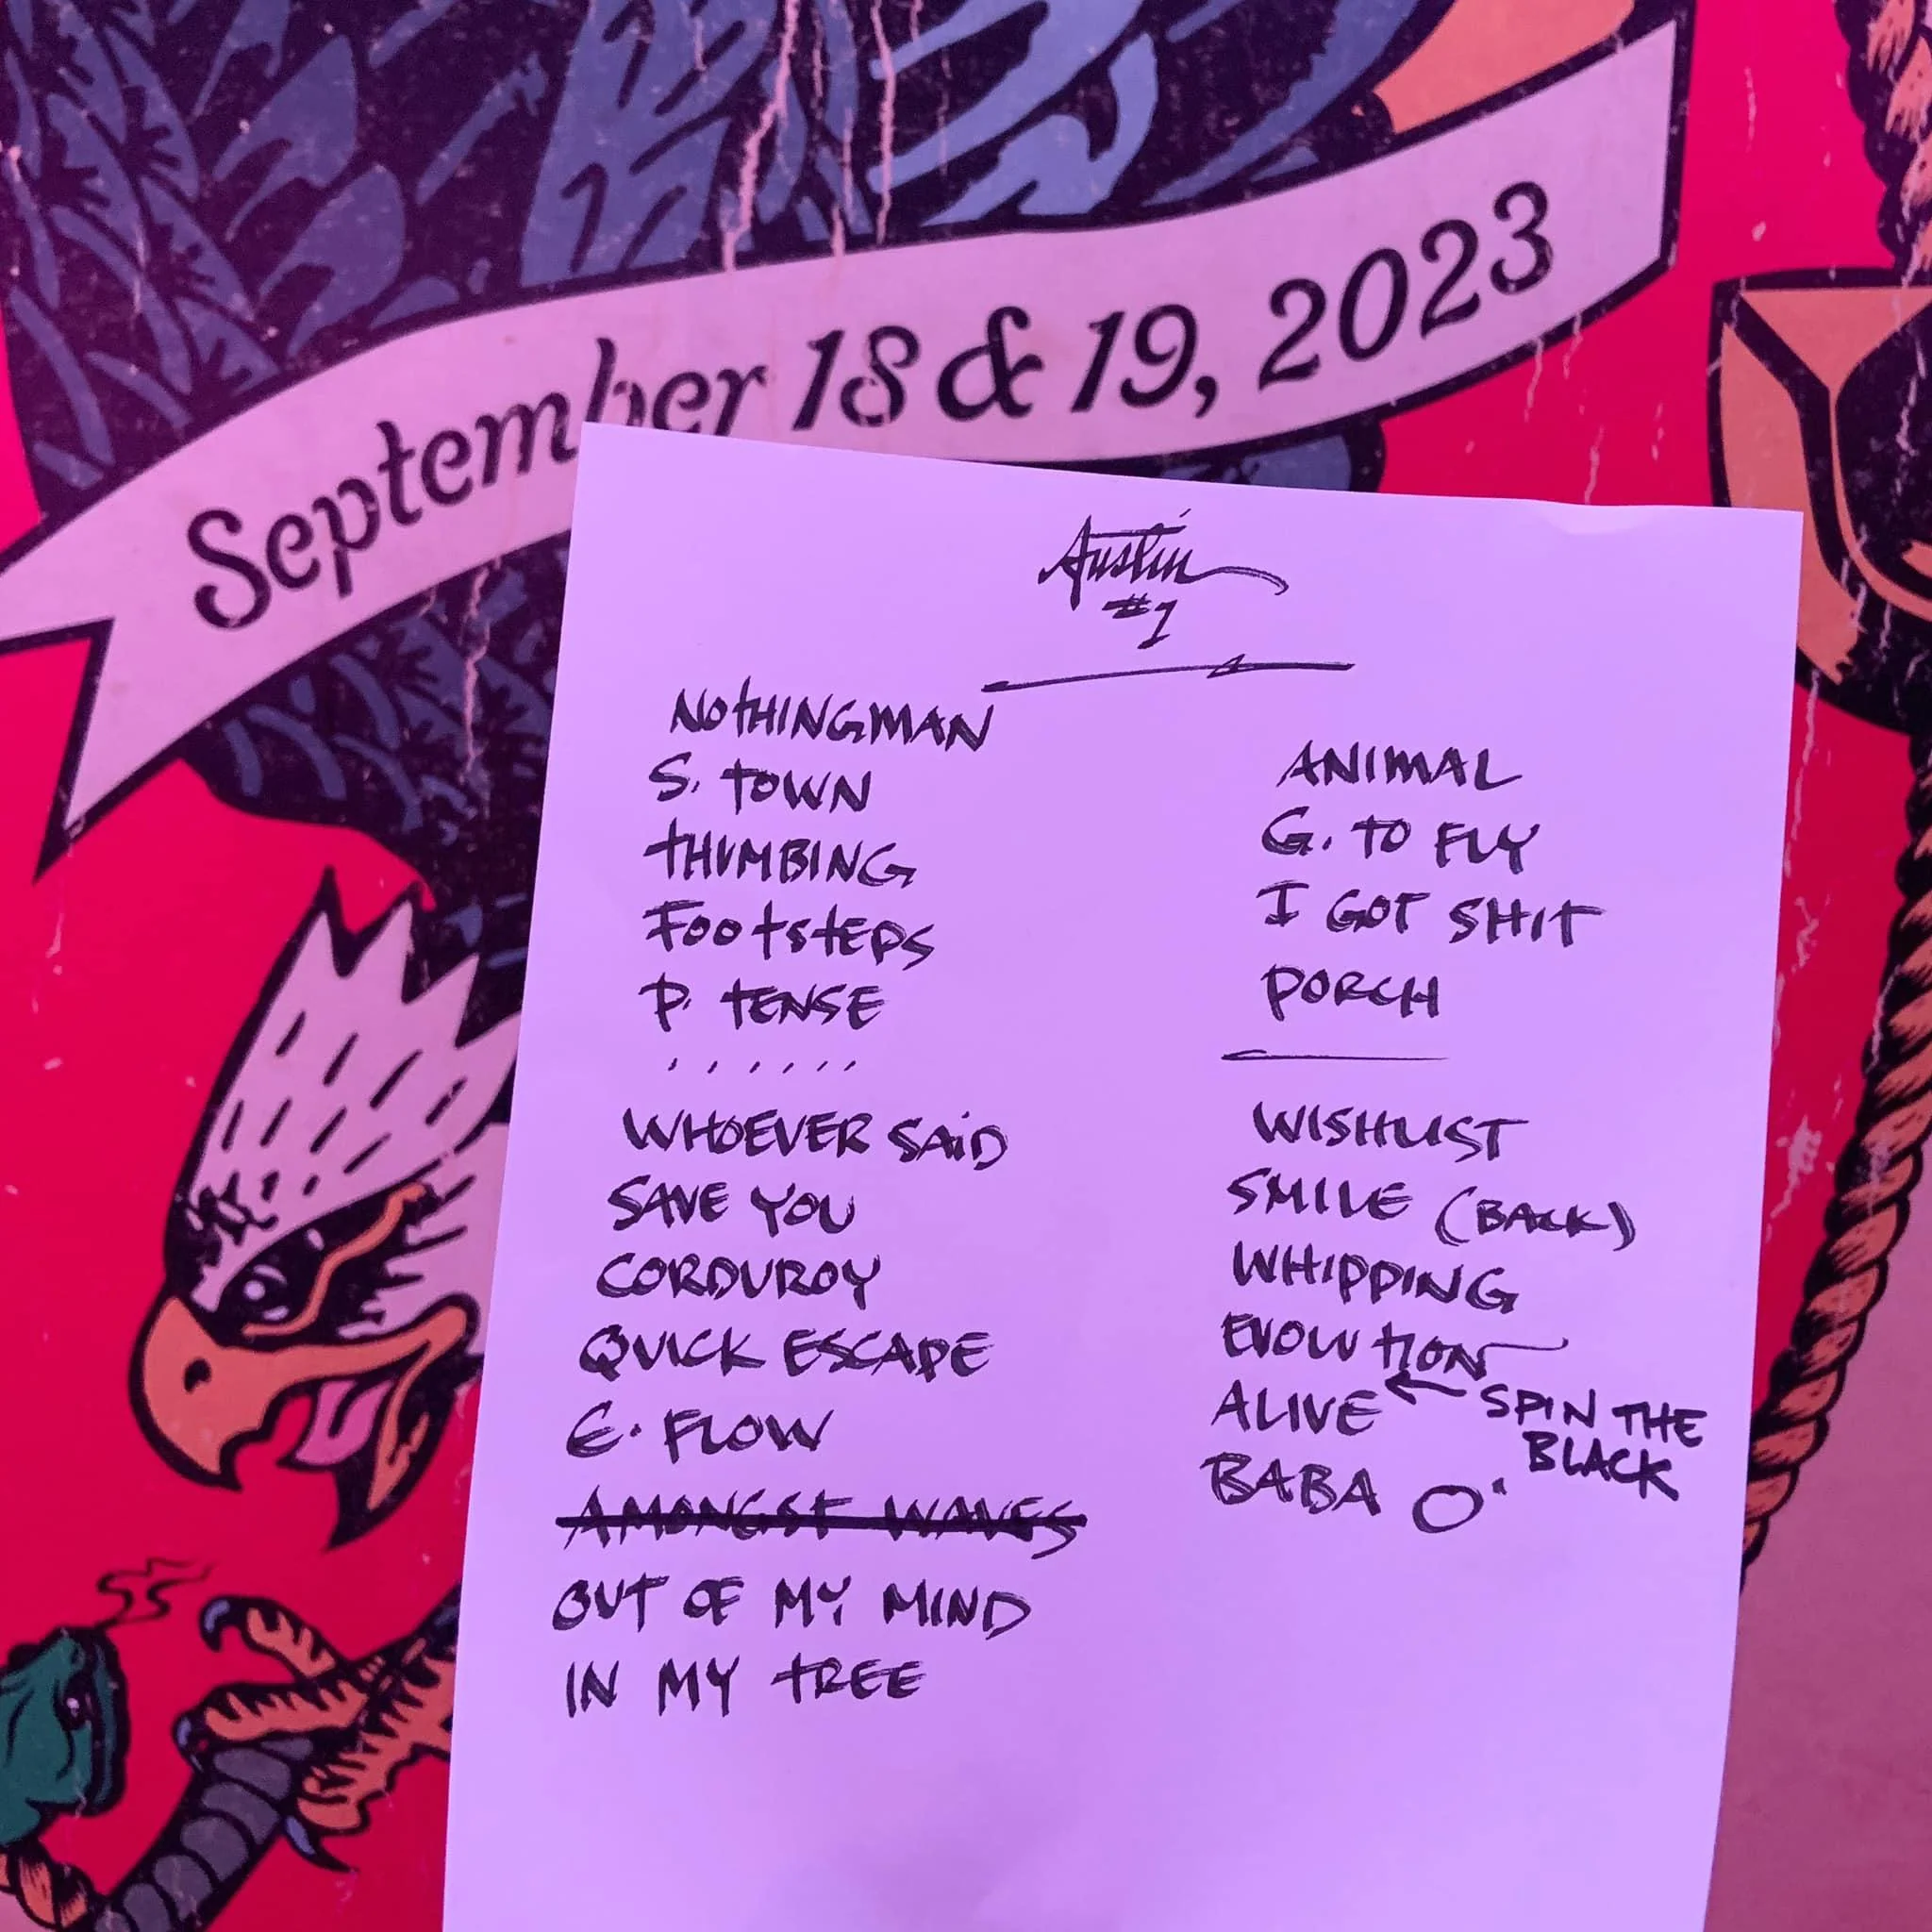 September 18 & 19, 2023
Austin
#1
NOTHINGMAN
S. TOWN
THUMBING
FOOTSTEPS
P. TENSE
......
WHOEVER SAiD
SAVE YOU
CORDUROY
QUICK ESCAPE
E. FLOW
AMONGST WAVES
OUT OF MY MIND
IN MY TREE
ANIMAL
G. TO FLY
I GOT SHIT
PORCH
WISHLIST
SMILE (BACK)
WHIPPING
EVOLUTION
ALIVE ← SPIN THE
BLACK
BABA O'